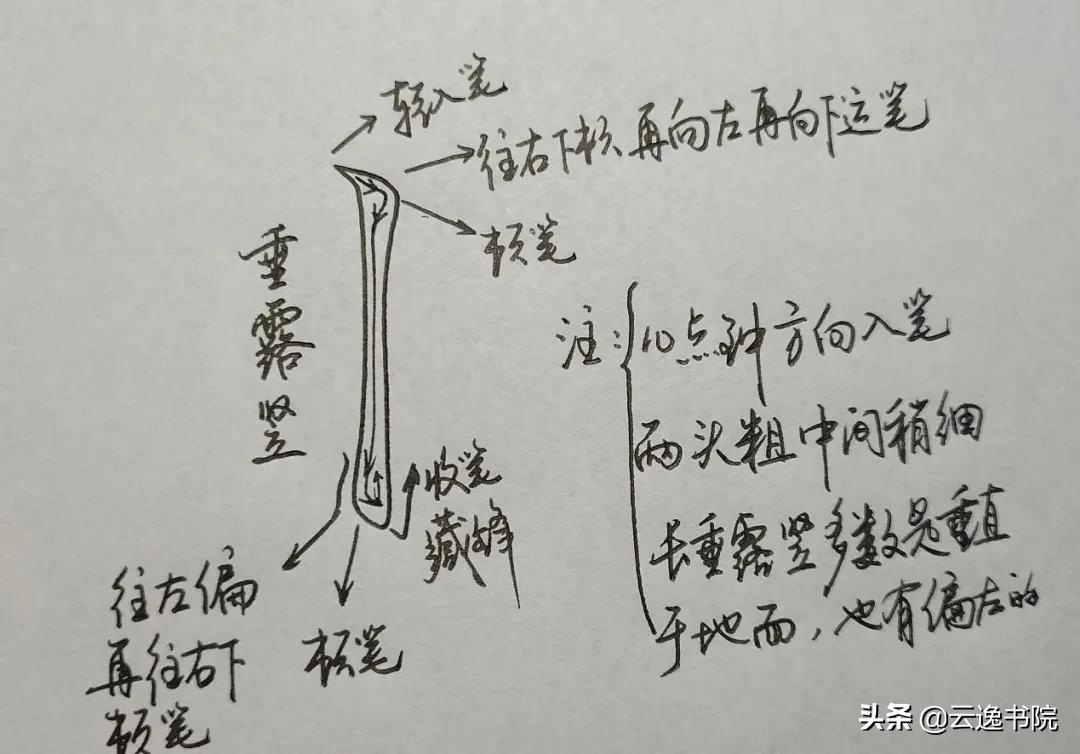 轻入笔
往右下顿再向左再向下运笔
顿笔
垂露竖
注:10点钟方向入笔
两头粗中间稍细
长垂露竖多数是垂直
于地面,也有偏左的
收笔
藏锋
往左偏
再往右下
顿笔
顿笔
头条 @云逸书院